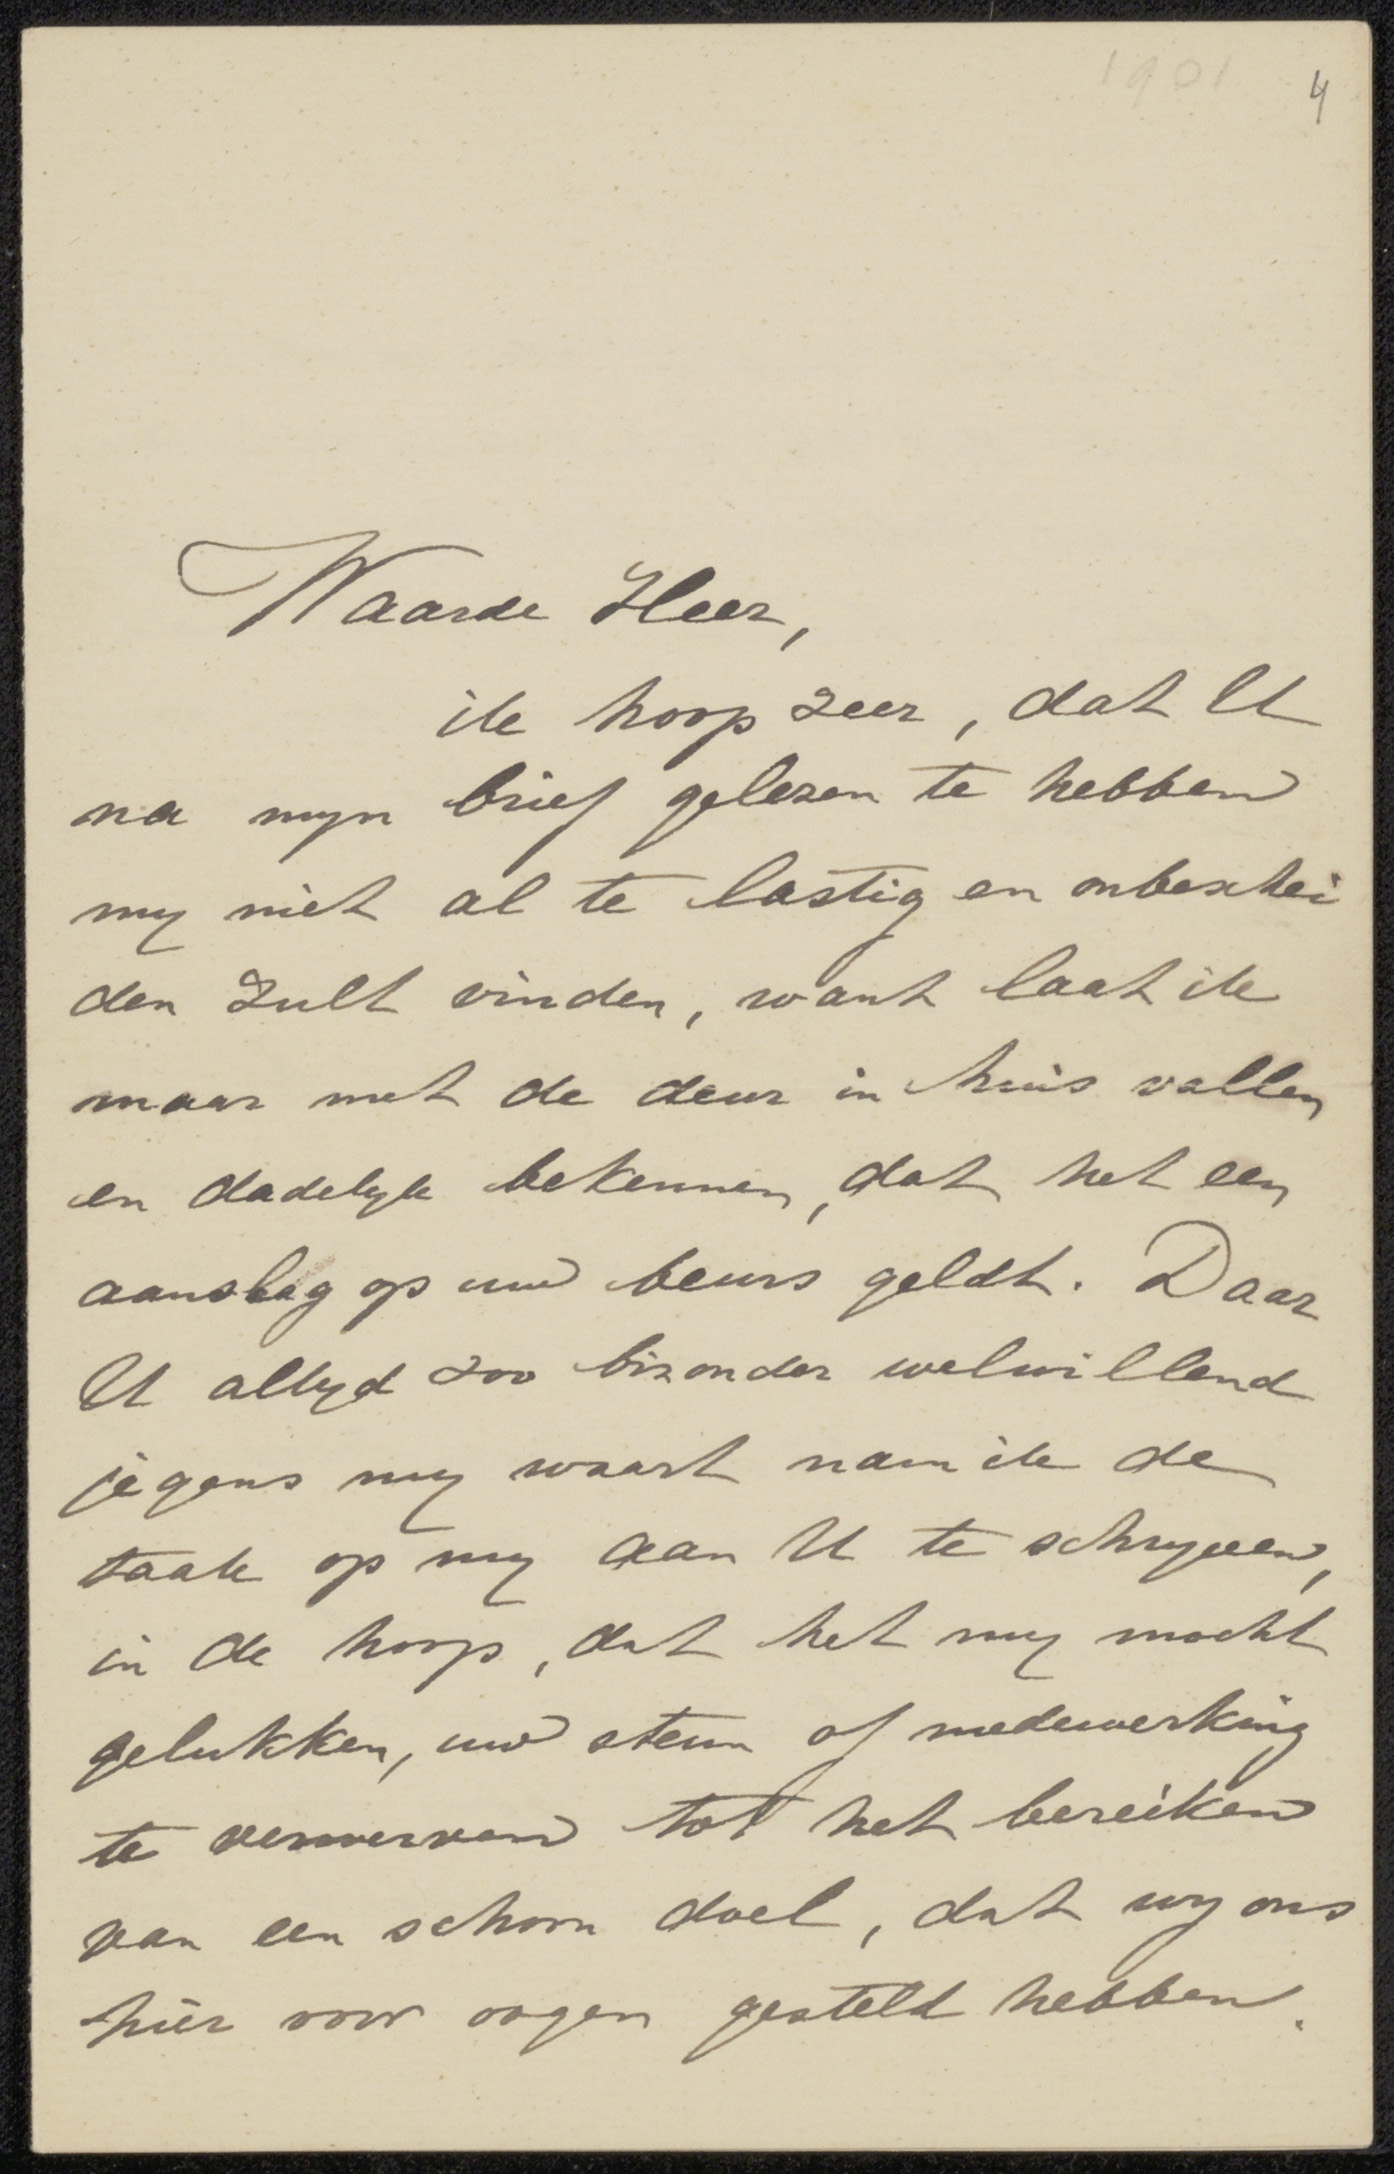 1901 4
Waarde Heer,
ik hoop zeer, dat U
na myn brief gelezen te hebben
my niet al te lastig en onbeschei
den zult vinden, want laat ik
maar met de deur in huis vallen
en dadelyk bekennen, dat het een
aanslag op uw beurs geldt. Daar
U altyd zoo bizonder welwillend
jegens my waart nam ik de
taak op my aan U te schryven,
in de hoop, dat het my mocht
gelukken, uw steun of medewerking
te verwerven tot het bereiken
van een schoon doel, dat wy ons
hier voor oogen gesteld hebben.